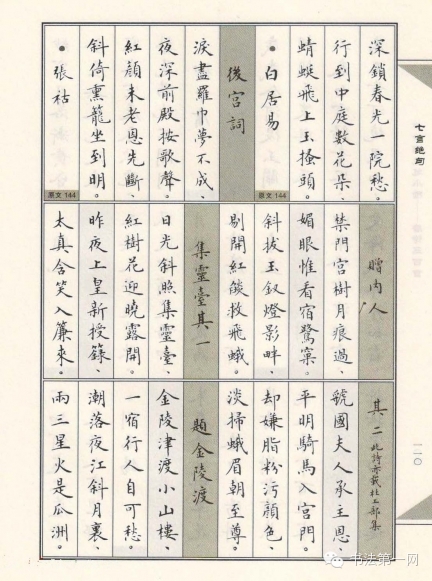 七言绝句
深鎖春光一院愁。
行到中庭數花朵、
蜻蜓飛上玉搔頭。
• 白居易
原文 144
後宮詞
淚盡羅巾夢不成、
夜深前殿按歌聲。
紅顏未老恩先斷、
斜倚熏籠坐到明。
• 張祜
原文 144
贈內人
禁門宮樹月痕過、
媚眼惟看宿鷺窠。
斜拔玉釵燈影畔、
剔開紅燄救飛蛾。
集靈臺其一
日光斜照集靈臺
紅樹花迎曉露開。
昨夜上皇新授籙、
太真含笑入簾來。
其二 此詩亦載杜工部集
虢國夫人承主恩、
平明騎馬入宮門。
却嫌脂粉污顏色、
淡掃蛾眉朝至尊。
題金陵渡
金陵津渡小山樓、
一宿行人自可愁。
潮落夜江斜月裏、
兩三星火是瓜洲。
一一〇
书法第一网